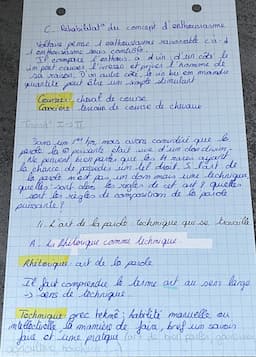 C. Réhabilitat° du concept d'enthousiasme
Voltaire pense l'enthousiasme raisonnable c'à-d
l'enthousiasme sous contrôle.
Il compare l'enthous. à d'un côté le
vin peut causer l'ivresse et priver l'homme de
sa raison. D'un autre côté, le vin bu en moindre
quantité peut être un simple stimulant
Coursier: cheval de course
Carrière: terrain de course de chevaux
Dans un 1er tps nous avons considéré que la
parole la + puissante était une d'un don divin.
Ne peuvent bien parler que les + rares ayant
la chance de posséder un tel don. Si l'art de
la parole n'est pas un don mais une technique,
quelles sont alors les règles de cet art? Quelles
sont les règles de composition de la parole
puissante?
II. L'art de la parole: technique qui se travaille
A. La Rhétorique comme technique
Rhétorique: art de la parole
Il faut comprendre le terme art au sens large
sens de technique.
Technique: grec teknê: habileté manuelle ou
intellectuelle, la manière de faire, bref un savoir
faire et une pratique